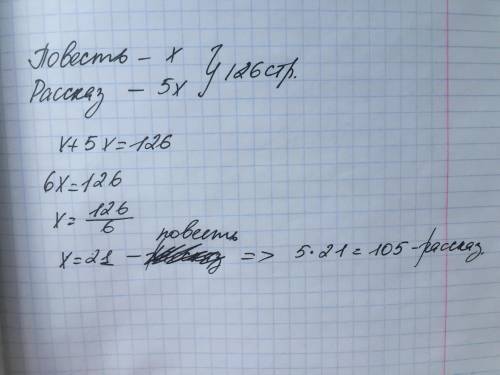 Повесть – x } 126 стр.
Рассказ – 5x
x+5x=126
6x=126
x= 126/6
повесть
x=21 – => 5·21=105-рассказ.